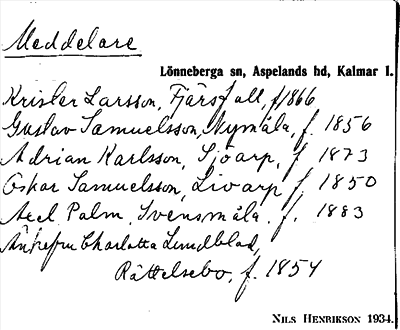 Meddelare
Lönneberga sn, Aspelands hd, Kalmar l.
Krister Larsson, Fjärsfall, f 1866
Gustav Samuelsson, Nymåla, f. 1856
Adrian Karlsson, Sjöarp, f 1873
Oskar Samuelsson, Livarp f 1850
Axel Palm, Svensmåla. f. 1883
Änkefru Charlotta Lundblad,
Rättelsebo, f. 1854
NILS HENRIKSON 1934.